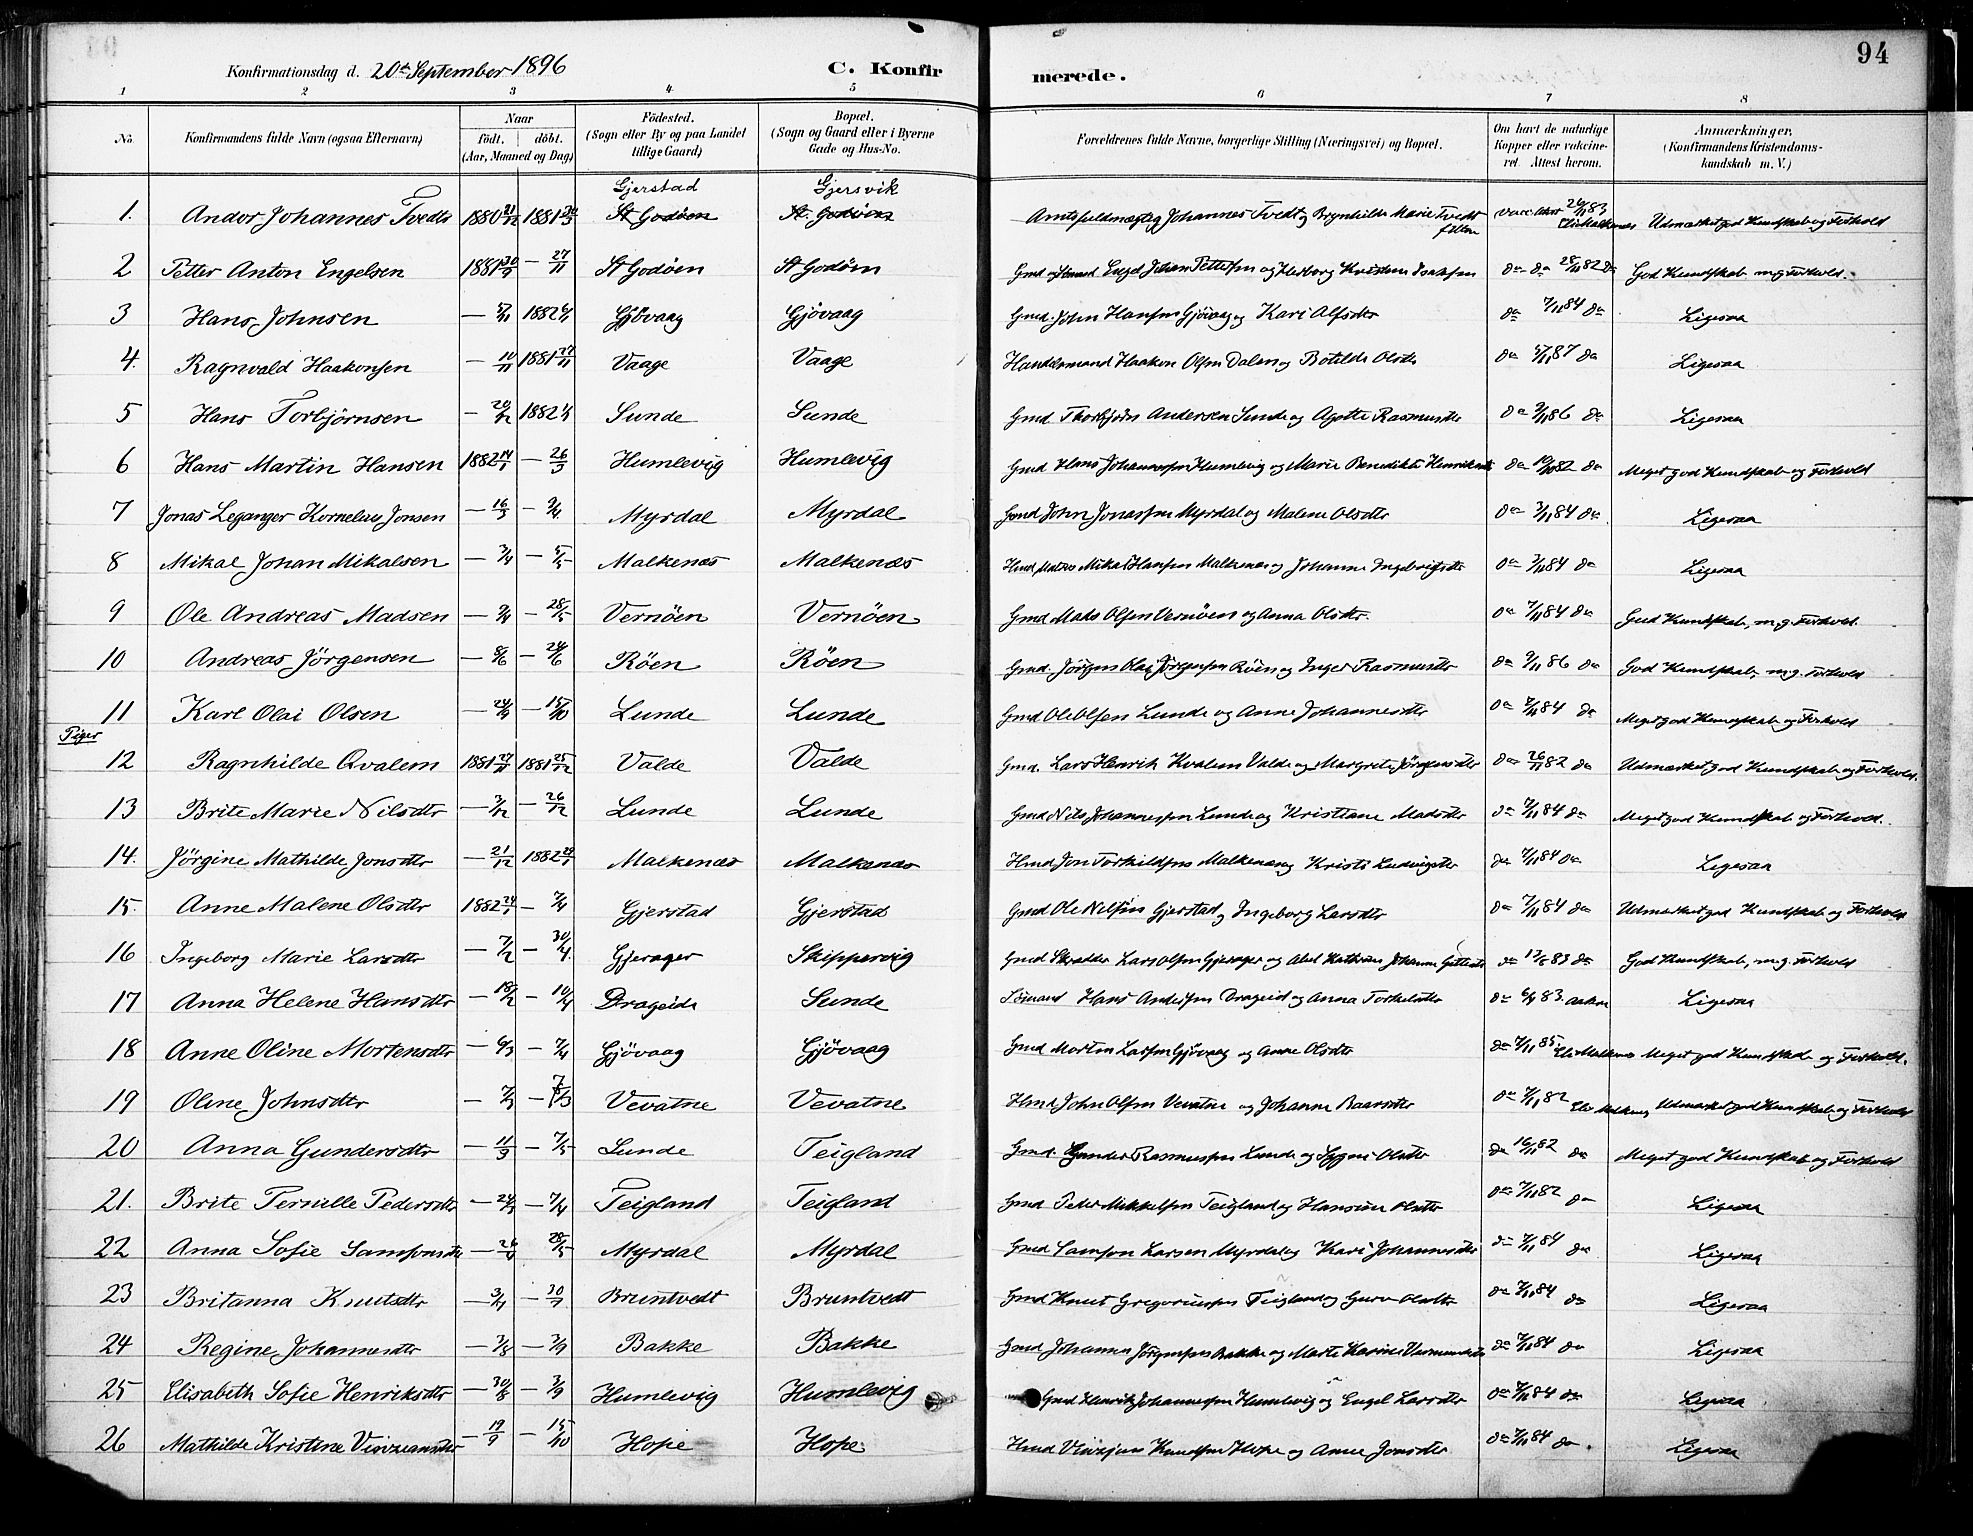 94
Konfirmationsdag d. 20de September 1896 C. Konfirmerede.
1 2 3 4 5 6 7 8
No. Konfirmandens fulde Navn (ogsaa Efternavn) Naar født. døbt. (Aar, Maaned og Dag) Fødested. (Sogn eller By og paa Landet tillige Gaard) Bopæl. (Sogn og Gaard eller i Byerne Gade og Hus-No. Forældrenes fulde Navne, borgerlige Stilling (Næringsvei) og Bopæl. Om havt de naturlige Kopper eller vaccineret. Attest herom. Anmærkninger. (Konfirmandens Kristendomskundskab m. V.)
Gjerstad Gjersvik
1. Andor Johannes Tvedt 1880 21/12 1881 20/3 St Godöen St. Godöen Amtsfuldmægtig Johannes Tvedt og Brynhilde Marie Tvedt 26/11 83 Udmærket god Kundskab og Forhold
2 Petter Anton Engelsen 1881 30/9 – 27/11 St Godöen St Godöen Engel Johan Pettersen og Herborg Kristine Isaksen da da 28/11 82 da God Kundskab m.g. Forhold.
3 Hans Johnsen – 1882 Gjövaag Gjövaag Gmd. John Hansen Gjövaag og Kari Alfsdtr da 7/11 84 da Ligesaa
4. Ragnvald Haakonsen – 10/11 1881 27/11 Vaage Vaage Handelsmand Haakon Olsen Dalen og Botilde Olsdtr da 87 da Ligesaa
5 Hans Torbjørnsen – 20/12 1882 Sunde Sunde Gmd Thorbjørn Andersen Sunde og Agathe Rasmusdtr da 9/11 86 da Ligesaa
6 Hans Martin Hansen 1882 14/1 – 26/3 Humlevig Humlevig Gmd Hans Johannessen Humlevig og Marie Benedikte Henriksdtr da 82 da Meget god Kundskab og Forhold
7 Jonas Leganger Kornelius Jonsen – 16/3 – 9/4. Myrdal Myrdal Gmd John Jonassen Myrdal og Malene Olsdtr da 7/11 84 da Ligesaa
8 Mikal Johan Mikalsen – 3/4 – 5/5 Malkenæs Malkenæs Mikal Hansen Malkenæs og Johanne Ingebrigtsdtr da 7/11 84 da Ligesaa
9 Ole Andreas Madsen – 9/4 – 28/5 Vernöen Vernöen Gmd Mads Olsen Vernöen og Anna Olsdtr. da 7/11 84 da God Kundskab, m.g. Forhold.
10 Andreas Jörgensen – 8/6 – 24/6 Röen Röen Gmd. Jörgen Olai Jörgensen Röen og Inger Rasmusdtr da 9/11 86 da God Kundskab, m.g. Forhold
11 Karl Olai Olsen – 24/9 – 15/10 Lunde Lunde Gmd Ole Olsen Lunde og Anne Johannesdtr da 7/11 84 da Meget god Kundskab og Forhold
Piger
12 Ragnhilde Qvalem 1881 27/11 1881 25/12 Valde Valde Gmd. Lars Henrik Kvalem Valde og Margrete Jörgensdtr da 26/11 82 da Udmærket god Kundskab og Forhold.
13 Brite Marie Nilsdtr – 3/12 – 26/12 Lunde Lunde Gmd Nils Johannessen Lunde og Kristiane Madsdtr da 7/11 84 da Meget god Kundskab og Forhold.
14. Jörgine Mathilde Jonsdtr – 21/12 1882 Malkenæs Malkenæs Hmd Jon Torkildsen Malkenæs og Kristi Ludvigsdtr da 7/11 84 da Ligesaa
15. Anne Malene Olsdtr 1882 24/1 – 7/4 Gjerstad Gjerstad Gmd Ole Nilsen Gjerstad og Ingeborg Larsdtr da 7/11 84 da Udmærket god Kundskab og Forhold
16 Ingeborg Marie Larsdtr – 7/2 – 30/4. Gjerager Skippervig Gmd Skrædder Lars Olsen Gjerager og Abel Kathrine Johanne da 83 da God Kundskab, m.g. Forhold
17 Anna Helene Hansdtr – 18/2 – 10/4 Drageide Sunde Sömand Hans Andersen Drageid og Anna Torkelsdtr da 83. Ligesaa
18 Anne Oline Mortensdtr – 6/3 – 7/4 Gjövaag Gjövaag Gmd Morten Larsen Gjövaag og Anne Olsdtr da 7/11 85 Meget god Kundskab og Forhold.
19 Oline Johnsdtr – 7/3 – Vevatne Vevatne Hmd John Olsen Vevatne og Johanne Baarsdtr da 7/11 82 Udmærket god Kundskab og Forhold
20 Anna Gundersdtr – 11/3 – 7/5 Lunde Teigland Gmd. Gunder Rasmussen Lunde og Olsdtr da 16/11 82 da Meget god Kundskab og Forhold
21. Brite Pernille Pedersdtr – 24/3 – 7/4 Teigland Teigland Gmd Peder Mikkelsen Teigland og Hansine Olsdtr da 7/11 82 da Ligesaa
22 Anna Sofie Samsonsdtr – 26/4 28/5 Myrdal Myrdal Gmd Samson Larsen Myrdal og Kari Johannesdtr da 7/11 84 da Ligesaa
23 Britanna Knutsdtr – 3/7 – 30/7 Bruntvedt Bruntvedt Gmd Knut Gregoriussen Teigland og Guro Olsdtr da 7/11 84 da Ligesaa
24 Regine Johannesdtr – 3/8 – 3/9 Bakke Bakke Gmd Johannes Jörgensen Bakke og Marte Karine da 7/11 84 da Ligesaa
25 Elisabeth Sofie Henriksdtr – 30/8 – 3/9 Humlevig Humlevig Gmd Henrik Johannessen Humlevig og Engel Larsdtr da 7/11 84 da Ligesaa
26 Mathilde Kristine – 19/9 – 15/10 Hope Hope Hmd Knudsen Hope og Anne Jonsdtr da 7/11 84 da. Ligesaa